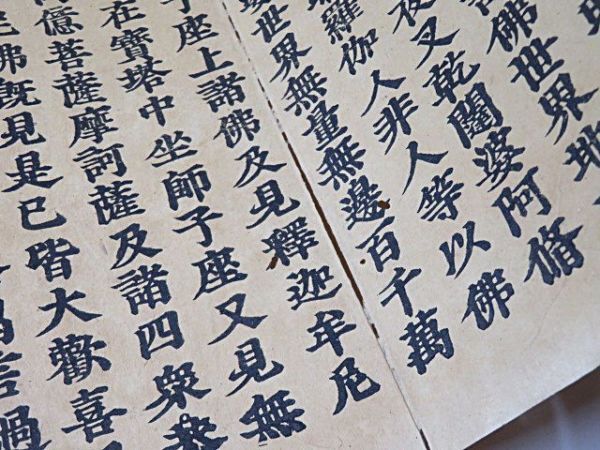 諸佛世界地
夜叉乾闥婆阿脩
羅伽人非人等以佛
世界無量無邊百千萬
子座上諸佛及見釋迦牟尼
在寶塔中坐師子座又見無
億菩薩摩訶薩及諸四衆恭
佛既見是已皆大歡喜
唱言過